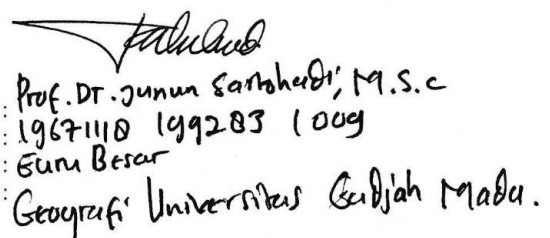 Prof. Dr. Junun Sartohadi, M.S.c
: 19671118 199203 1 009
: Guru Besar
: Geografi Universitas Gadjah Mada.